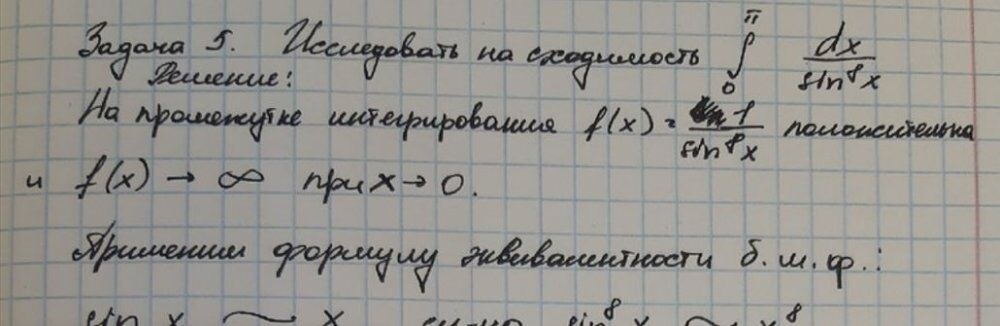 Задача 5. Исследовать на сходимость ∫₀^π dx/sin⁸x
Решение:
На промежутке интегрирования f(x) = 1/sin⁸x положительна
и f(x) → ∞ при x → 0.
Применим формулу эквивалентности б.м.ф.:
sin x ~ x sin⁸x ~ x⁸